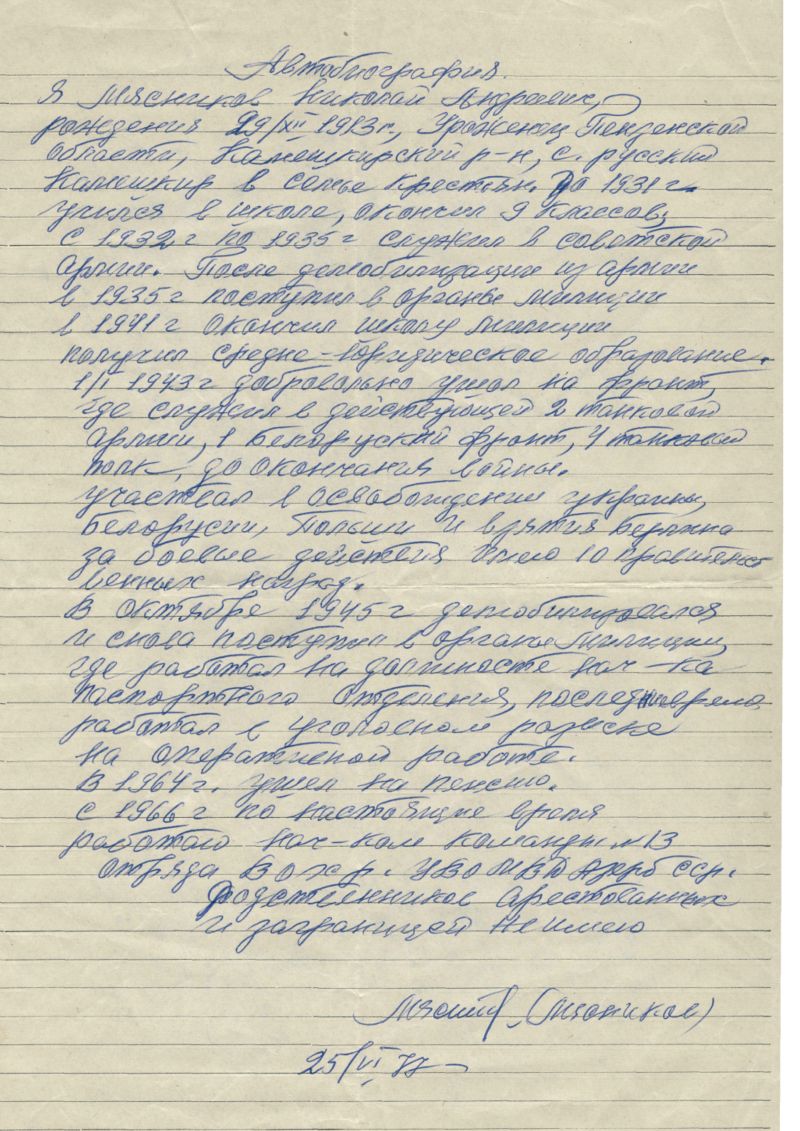 Автобиография.
Я Мясников Николай Андреевич,
рождения 29/XII 1913г., Уроженец Пензенской
области, Камешкирский р-н, с. русский
Камешкир в семье Крестьян. До 1931 г
учился в школе, окончил 9 классов,
с 1932 г по 1935 г служил в советской
армии. После демобилизации из армии
в 1935 г поступил в органы милиции
в 1941 г окончил школу милиции
получил средне-юридическое образование.
1/I 1943 г добровольно ушол на фронт,
где служил в действующей 2 танковой
армии, 1 Белоруский фронт, 4 танковой
полк, до окончания войны.
участвал в освобождении украины,
Белорусии, Польши и взятия Берлина
за боевые действия имею 10 правительст
венных наград.
В октябре 1945 г демобилизовался
и снова поступил в органы милиции,
где работал на должносте нач-ка
паспортного отделения, последнние время
работал в уголовном розыске
на оперативной работе.
В 1964 г. ушел на пенсию.
с 1966 г по настоящие время
работаю нач-ком команды №13
отряда Вохр. УВО МВД Азерб ССР.
Родственников арестованных
и заграницей не имею
(Мясников)
25/VI 77